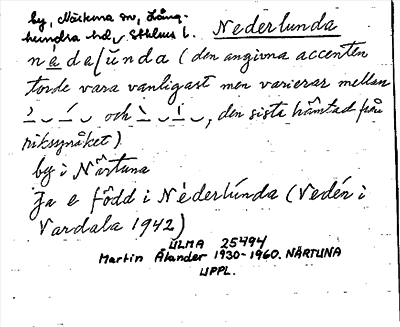 by, Närtuna sn, Lång-
hundra hd, Sthlms l. Nederlunda
nädalunda (den angivna accenten
torde vara vanligast men varierar mellan
och, den sista hämtad från
riksspråket)
by i Närtuna
Ja e född i Nèderlúnda (Vedén i
Vardala 1942)
ULMA 25494
Martin Ålander 1930-1960. NÄRTUNA
UPPL.